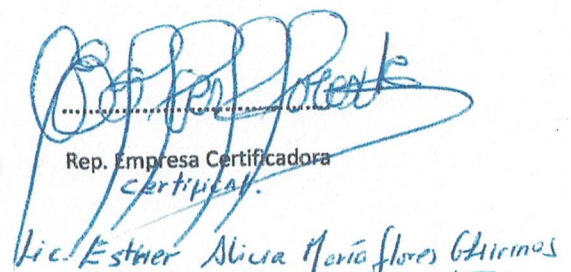 Rep. Empresa Certificadora
Certifical.
Lic. Esther Alicia María Flores Chirinos